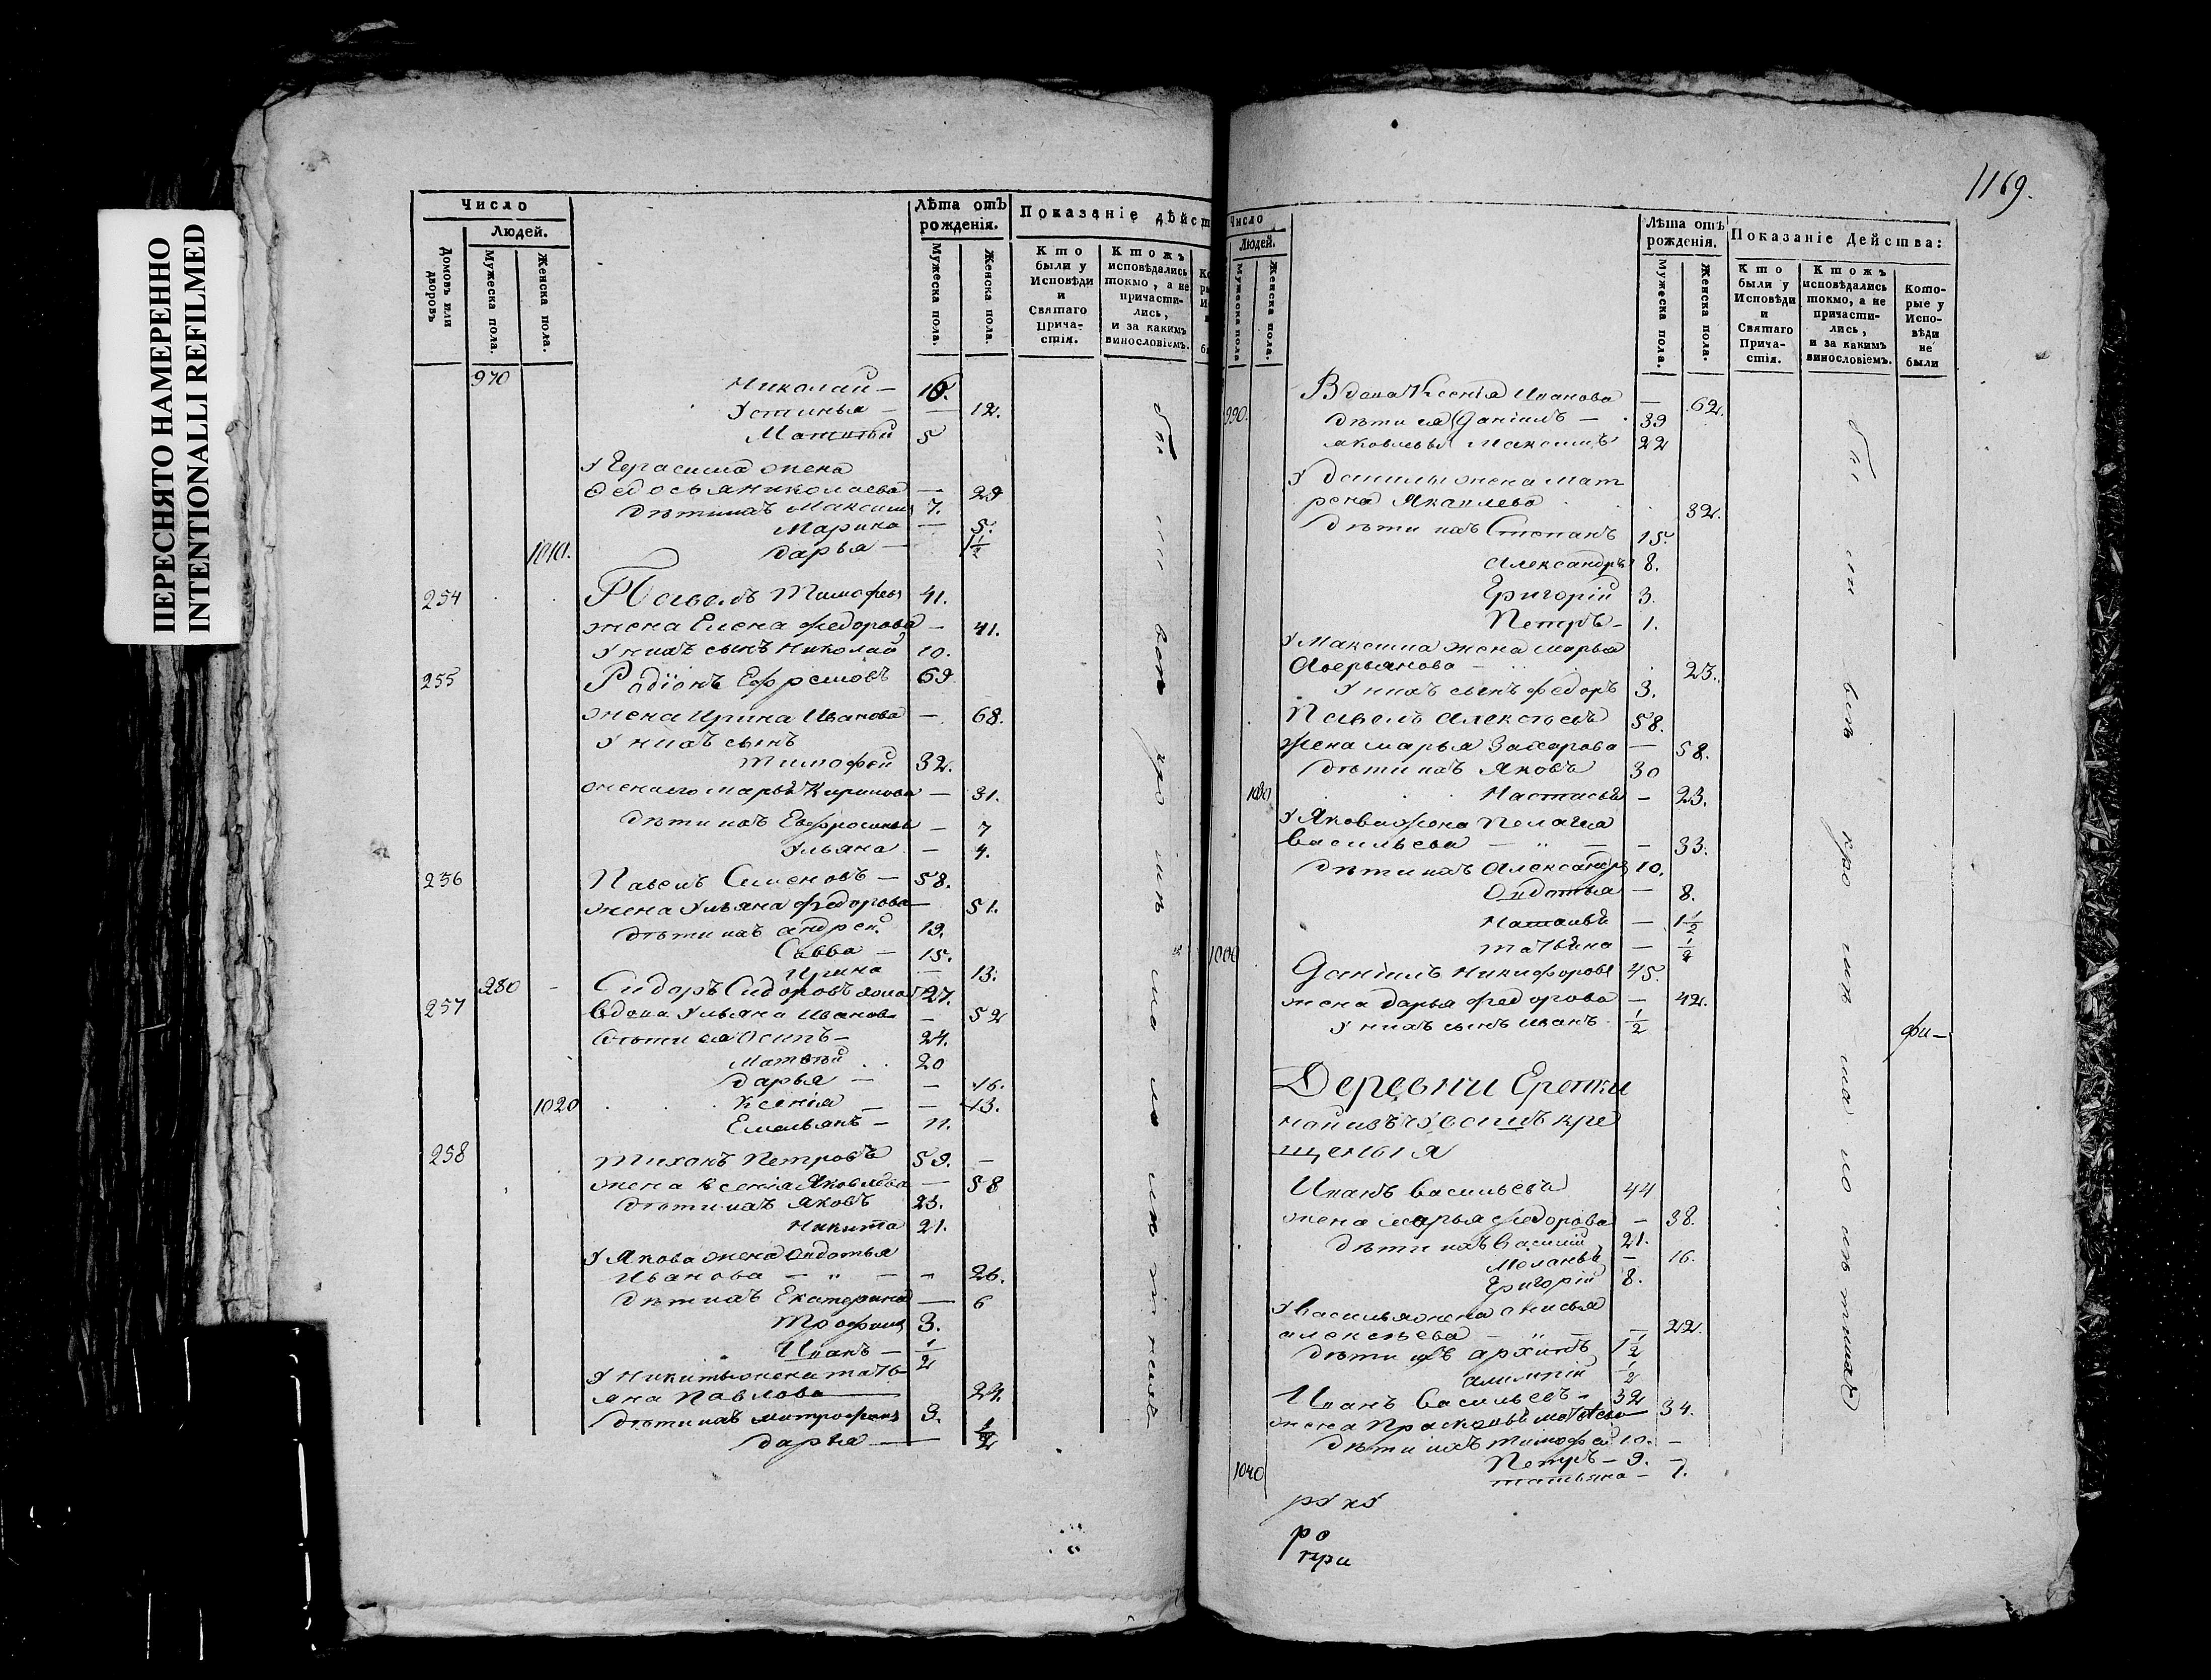 ПЕРЕСНЯТО НАМЕРЕННО
INTENTIONALLI REFILMED
Число
Людей.
Домовъ или дворовъ
Мужеска пола.
Женска пола.
Лѣта отъ рожденія.
Мужеска пола.
Женска пола.
Показаніе дѣйст
Кто были у Исповѣди и Святаго Прича-стія.
Ктожъ исповѣдались токмо, а не причасти-лись, и за какимъ винословіемъ.
970 Николай — 16.
Устинья — — 12.
5
У Герасима жена
Федосья Николаева — 29
Дѣти ихъ Максимъ 7.
Марина — 5.
1010. Дарья — 1½
254 Павелъ Тимофеевъ 41.
жена Елена Федорова — 41.
У нихъ сынъ Николай 10.
255 Родіонъ Ефремовъ 69.
жена Ирина Иванова — 68.
У нихъ сынъ
Тимофей 32.
жена его Марья — 31.
Дѣти ихъ Евфросинья — 7
Ульяна — 4.
256 Павелъ Семеновъ — 58.
жена Ульяна Федорова — 51.
Дѣти ихъ Андрей 19.
Савва — 15.
Ирина — 13.
980 Сидоръ Сидоровъ 27.
257 Вдова Ульяна Иванова — 52
Дѣти ея Осипъ — 24.
Матвѣй 20
Дарья — — 16.
1020 Ксенія — — 13.
Емельянъ — 11.
258 Тихонъ Петровъ 59. —
жена Ксенія Яковлева — 58
Дѣти ихъ Яковъ 23.
Никита 21.
У Якова жена Авдотья
Иванова — 26.
Дѣти ихъ Екатерина — 6
Трофимъ 3.
Иванъ — ½
У Никиты жена Татьяна
Павлова 24.
Дѣти ихъ Митрофанъ 3.
Дарья — ½
1169.
Число
Людей.
Мужеска пола
Женска пола.
Лѣта отъ рожденія.
Мужеска пола.
Женска пола.
Показаніе Действа:
Кто были у Исповѣди и Святаго Прича-стія.
Ктожъ исповѣдались токмо, а не причасти-лись, и за какимъ винословіемъ.
Кото-рые у Испо-вѣди не были
Вдова Ксенія Иванова — 62.
990. Дѣти ея Даніилъ — 39
Яковлевы Максимъ 22
У Данилы жена Мат
рена Яковлева 32.
Дѣти ихъ Степанъ 15.
Александръ 8.
Григорій 3.
Петръ — 1.
У Максима жена Марья
Аверьянова — 23.
У нихъ сынъ Федоръ 3.
Павелъ Алексѣевъ 58.
жена Марья Захарова — 58.
Дѣти ихъ Яковъ 30
1030 Настасья — 23.
У Якова жена Пелагея
Васильева — 33.
Дѣти ихъ Александръ 10.
Авдотья — 8.
Наталья — 1½
Татьяна — ½
1000 Даніилъ Никифоровъ 45.
жена Дарья Федорова — 42.
У нихъ сынъ Иванъ ½
Деревни
кре
щеныя
Иванъ Васильевъ 44
жена Марья Федорова — 38.
Дѣти ихъ Василій 21.
Меланья — 16.
Григорій 8.
У Василья жена Анисья
Алексѣева — 22.
Дѣти ихъ Архипъ 1½
½
Иванъ Васильевъ — 32
жена Прасковья 34.
Дѣти ихъ Тимофей 10. —
Петръ — 9. —
1040 Татьяна — 7.
руку
ро
при